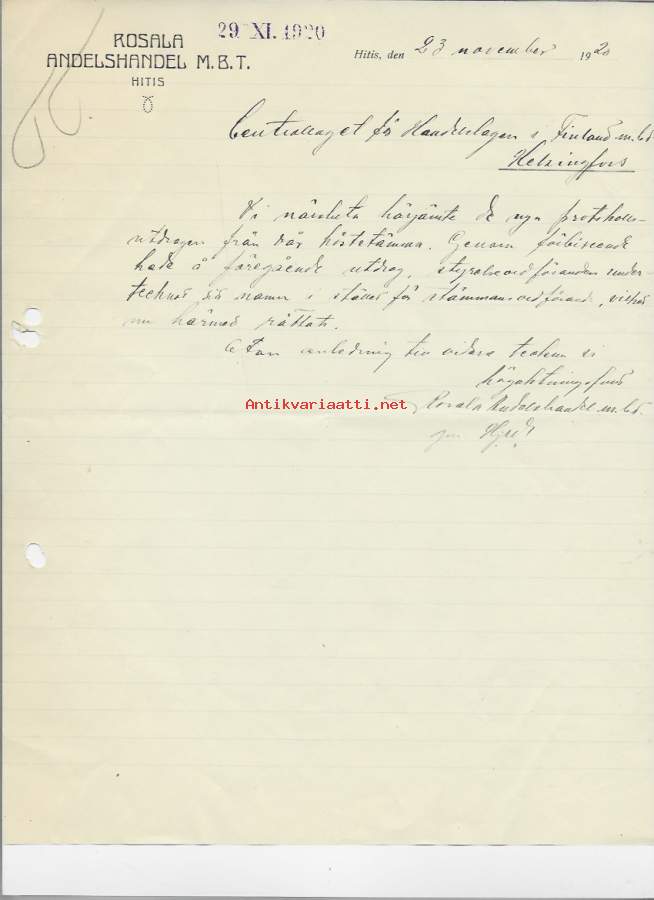 29 XI. 1920
ROSALA
ANDELSHANDEL M.B.T.
HITIS
Hitis, den 23 november 1920
Centrallaget för Handelslagen i Finland m.b.t.
Helsingfors
Vi närsluta härjämte de nya protokolls-
utdragen från vår höststämma. Genom förbiseende
hade å föregående utdrag, styrelseordföranden under-
tecknat sitt namn i stället för stämmans ordförande, vilket
nu härmed rättats.
Utan anledning till vidare teckna vi
högaktningsfullt
Rosala Andelshandel m.b.t.
Antikvariaatti.net